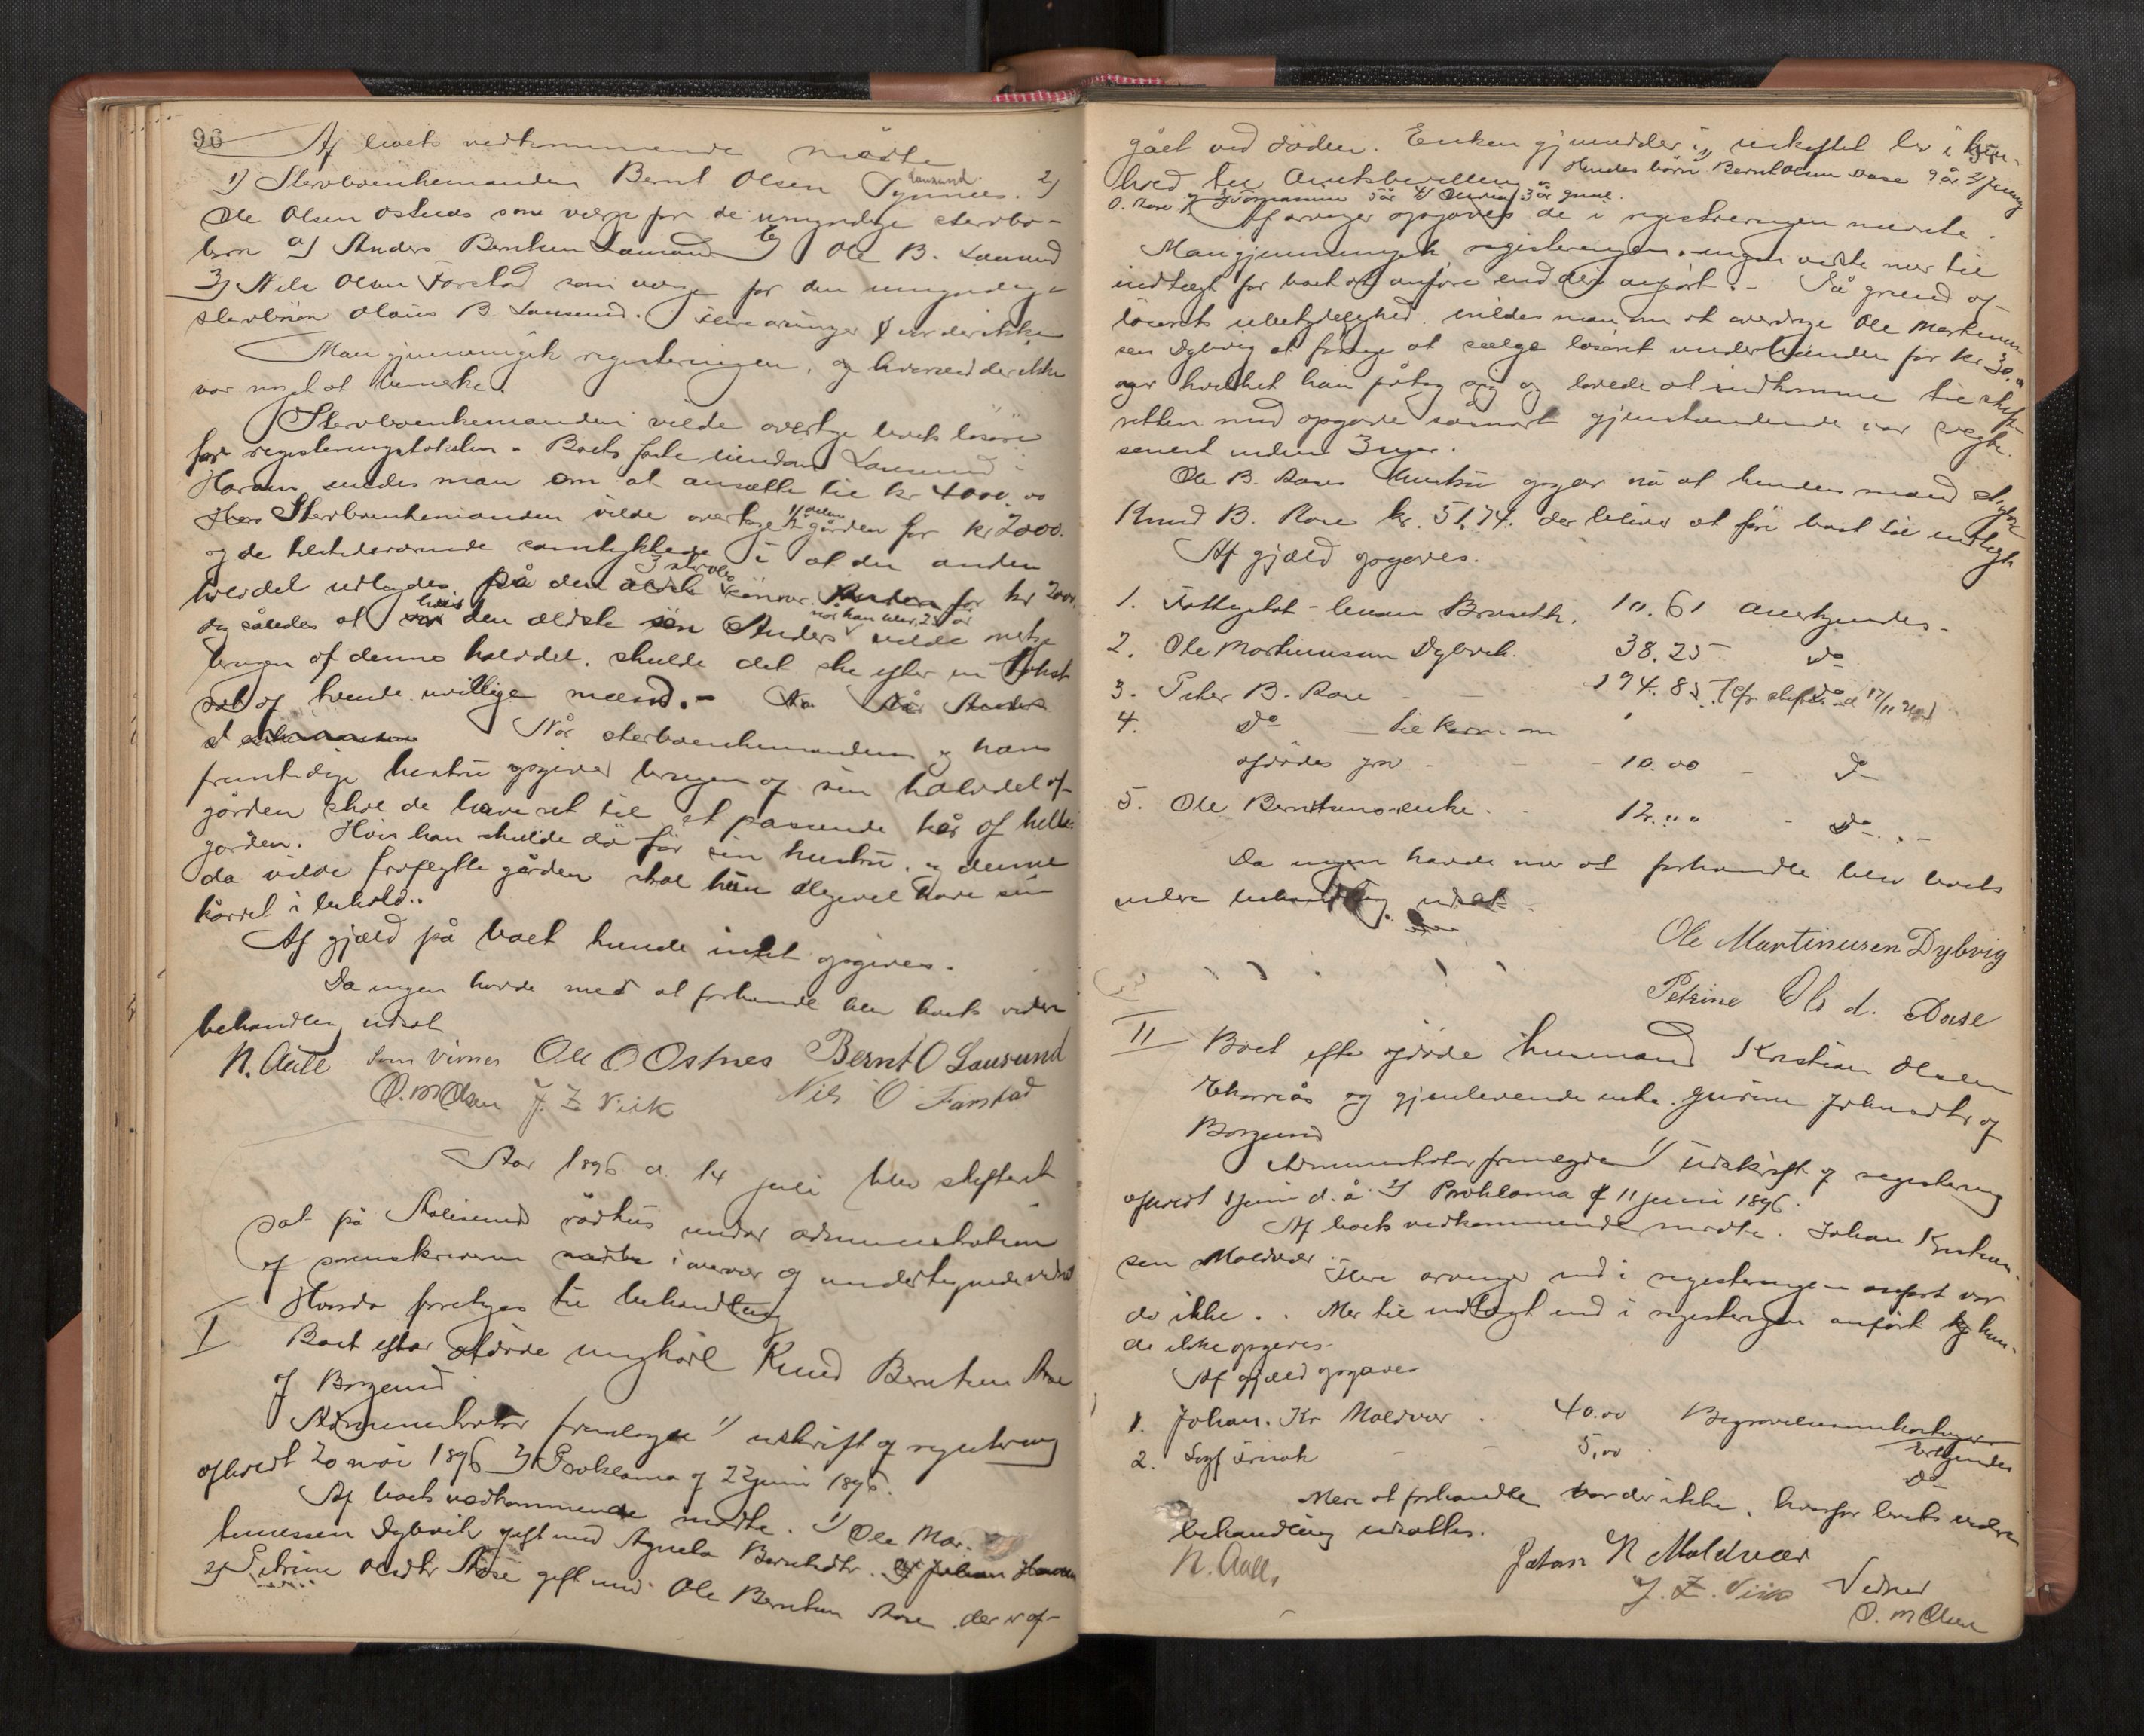 96
Af boets vedkommende mødte
1) Stervboenkemanden Bernt Olsen Synnes. Lausund 2)
Ole Olsen Ostnes som værge for de umyndige stervbo-
børn a) Anders Berntsen Lausund b) Ole B. Lausund
3) Nils Olsen Farstad som værge for den umyndige
stervbosøn Olaus B. Lausund. Flere arvinger er der ikke
Man gjennemgik registreringen, og hvorved der ikke
var noget at bemerke.
Stervboenkemanden vilde overtage boets løsøre
for registreringstaksten. Boets faste eiendom Lausund i
Haram enedes man om at ansætte til kr 4000.00
Stervboenkemanden vilde overtage 1/2 delen gården for kr 2000.
og de tilstedeværende samtykkede i at den anden
halvdel udlagdes på de 3 sønner for kr 2000.
dog således at hvis den ældste søn Anders når han blev 25 år vilde
brugen af denne halvdel, skulde det ske efter en
af uvillige mænd.-
Når stervboenkemanden og hans
fremtidige hustru opgiver brugen af sin halvdel af
gården skal de have ret til et passende kår af hele
gården. Hvis han skulde dø før sin hustru, og denne
da vilde fraflytte gården skal hun alligevel have sin
kårret i behold..
Af gjæld på boet kunde intet opgives.
Da ingen havde med at forhandle blev boets videre
behandling udsat
N. Aall som vidner Ole O Ostnes Bernt O Lausund
O. M Olsen J. Z Viik Nils O Farstad
Aar 1896 d. 14 juli blev skifteret
sat på Aalesunds rådhus under administration
af sorenskriveren i overvær af undertegnede vidner
Hvorda foretoges til behandling
I Boet efter afdøde ungkarl Knud Berntsen Aase
af Borgund
Administrator fremlagde 1) udskrift af registrering
afholdt 20 mai 1896 2) Proklama af 22 juni 1896.
Af boets vedkommende mødte. 1) Ole Mar-
tinussen Dybvik gift med Berntsdtr.
2) Petrine Olsdtr Aase gift med Ole Berntsen Aase der er af-
gået ved døden. Enken gjensidder i uskiftet bo i hen-
hold til Amtsbevilling Hendes børn 1) Bernt Olsen Aase 9 år 2)
O. Aase 5 år 4) 3 år gml.
Af arvinger opgaves de i registreringen nævnte.
Man gjennemgik registreringen. ingen vidste mer til
indtægt for boet at anføre end der anført. - På grund af
løsørets ubetydelighed enedes man om at overdrage Ole Martinus-
sen Dybvig at forsøge at sælge løsøret underhånden for kr 30.
hvilket han påtog sig og lovede at indkomme til skifte-
retten med opgave såsnart gjenstandende var solgte.
senest inden 3 uger.
Ole B. Aases hustru opgav nu at hendes mand skyldte
Knud B. Aase kr. 51,74. der bliver at føre boet til indtægt
Af gjæld opgaves.
1. Fattigkat - lensm Bruseth. 10.61 anerkjendes.
2. Ole Martinussen Dybvik. 38.25 do
3. Peter B. Aase - - 194.85 do
4. do - til
afdødes grav - - 10.00 - do
5. Ole Berntsens enke. - 12.„„ - do . -
Da ingen havde mer at forhandle blev boets
videre behandling udsat
Ole Martinusen Dybvig
Petrine Ols d. Aase
II Boet efter afdøde husmand Kristian Olsen
og gjenlevende enke Johnsdtr af
Borgund
Administrator fremlagde 1) Udskrift af registrering
afholdt 1 juni d. å. 2) Proklama af 11 juni 1896.
Af boets vedkommende mødte. Johan Kristian-
sen Moldvær. Flere arvinger end i registreringen anført var
der ikke. . Mer til indtægt end i registreringen anført kun-
de ikke opgives.
Af gjæld opgaves
1. Johan. Kr Moldvær . 40.00 Begravelsesomkostninger Erkjendes
2. - - 5,00 . do
Mere at forhandle var der ikke, hvorfor boets videre
behandling udsattes.
N. Aall, Johan K Moldvær
J. Z. Viik Vidner
O. M Olsen